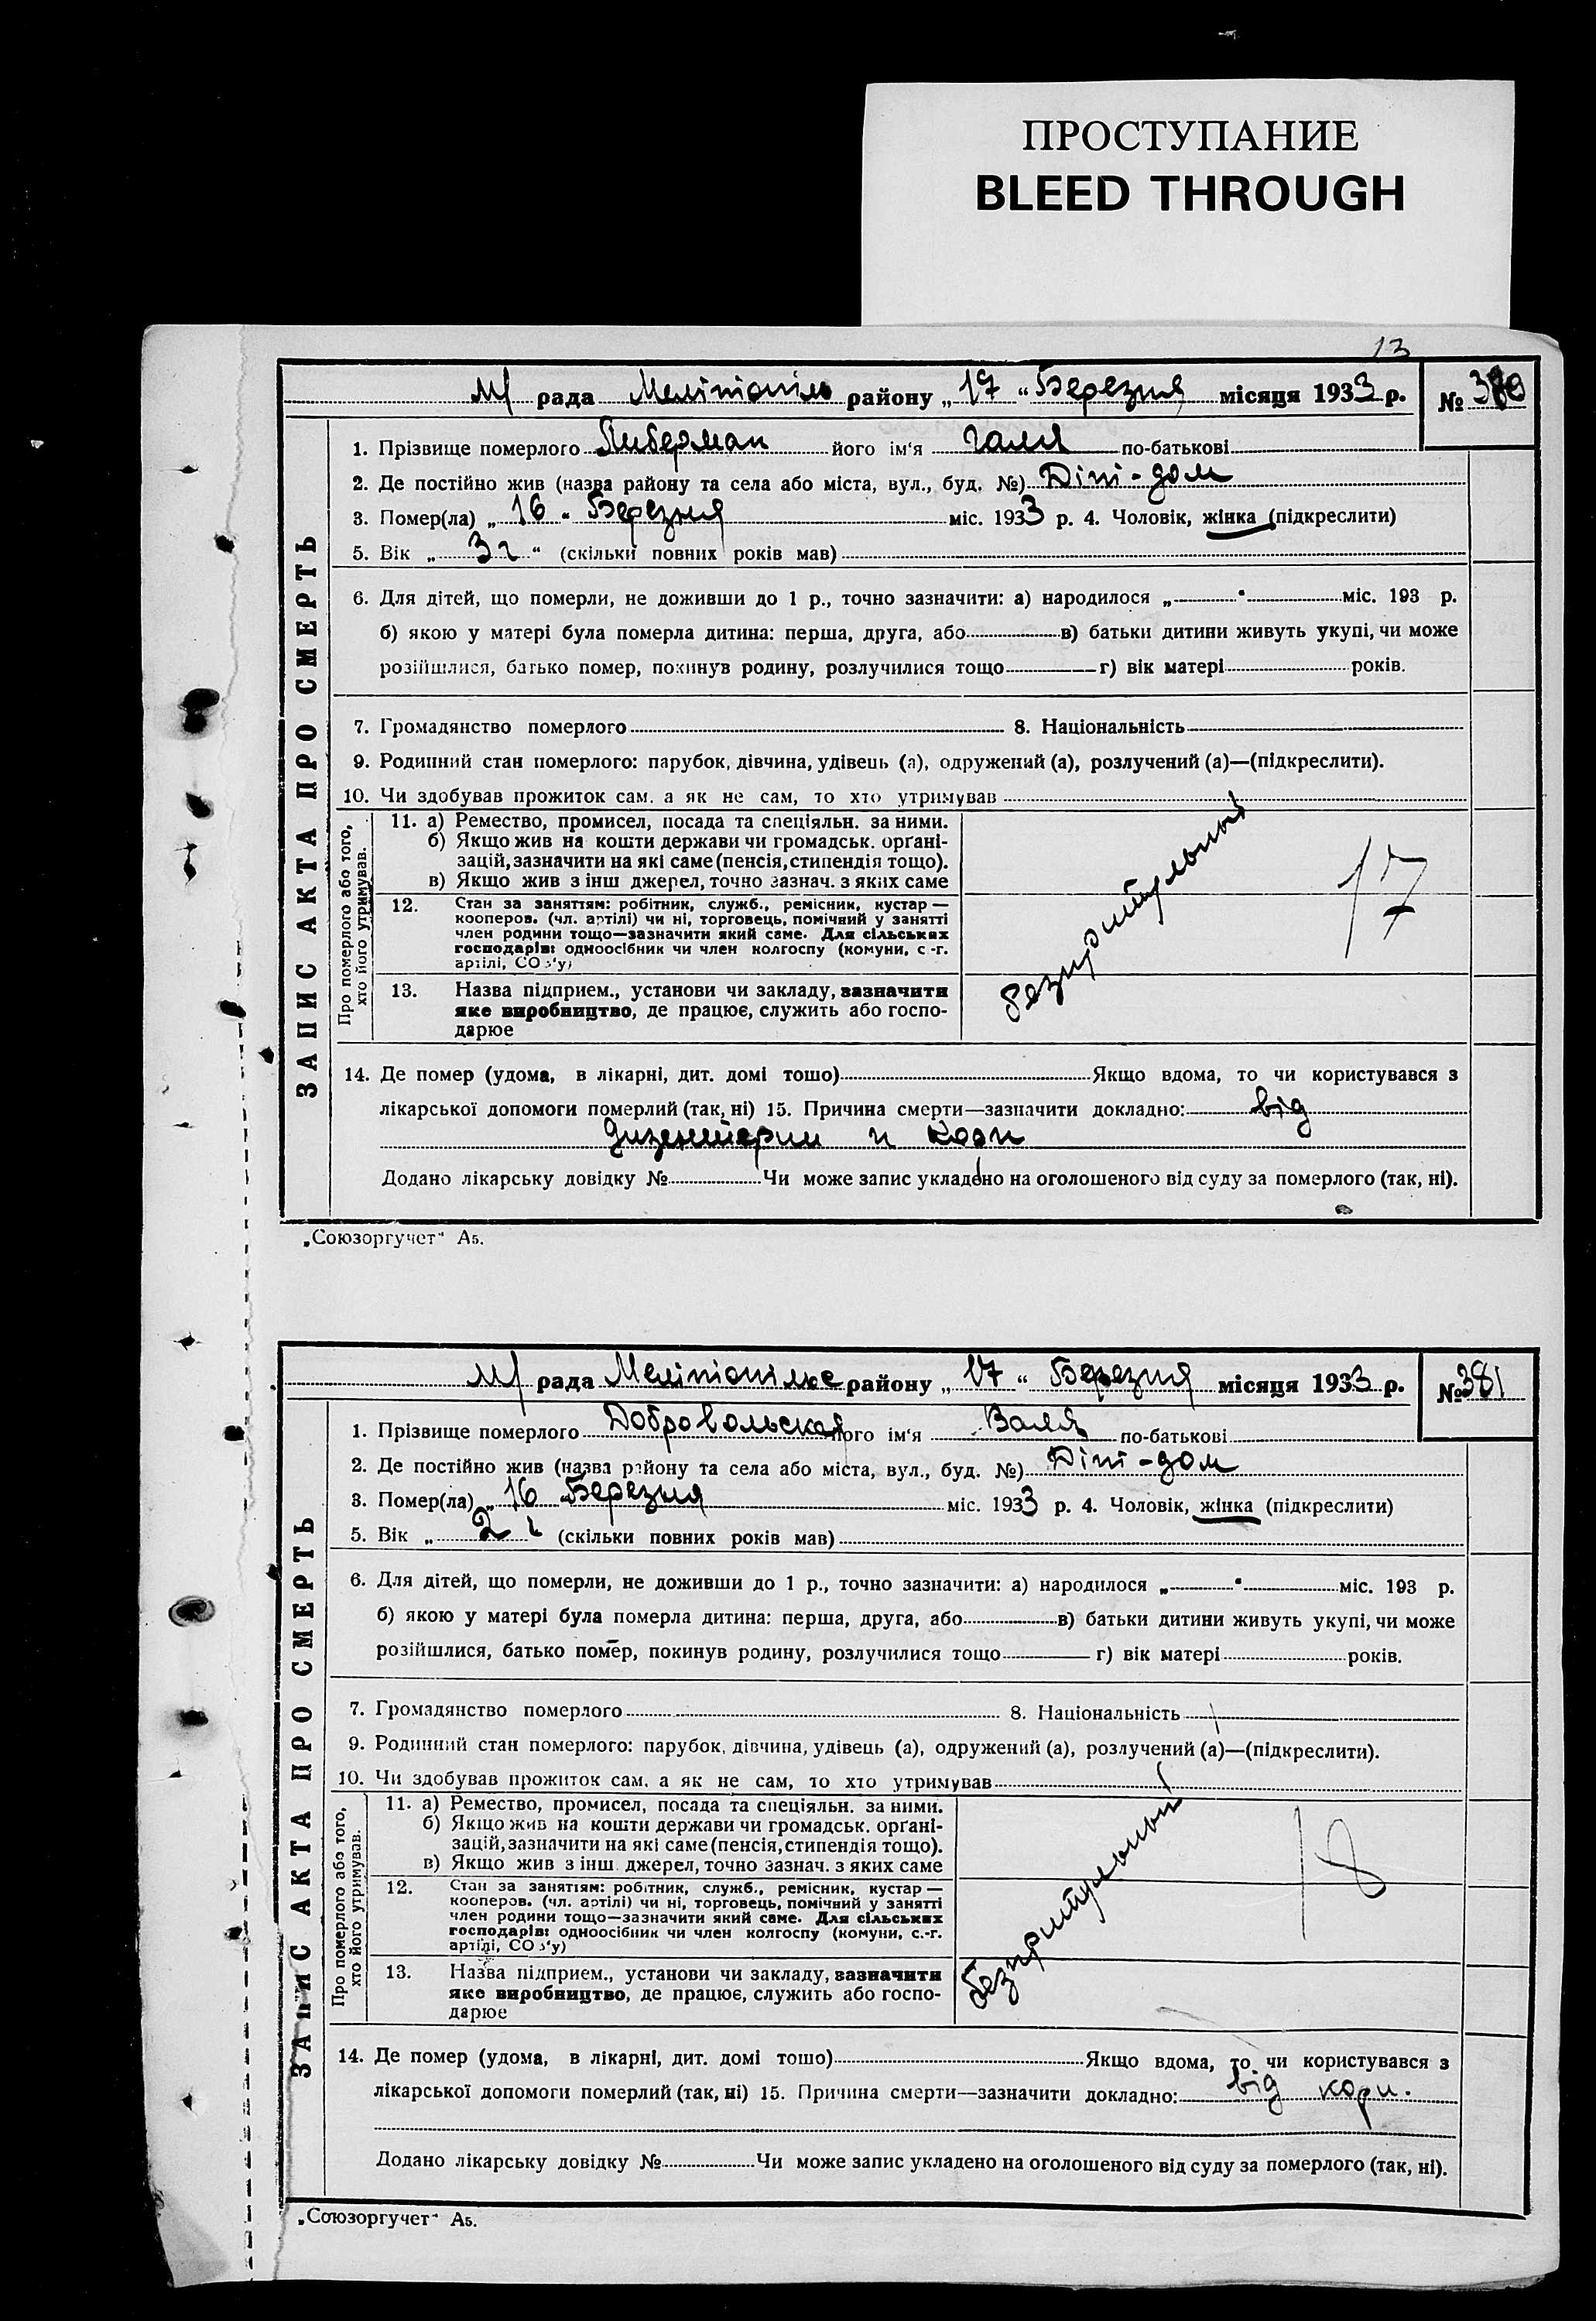 ПРОСТУПАНИЕ
BLEED THROUGH
13
м/ рада Мелітопіль району „ 17 “ Березня місяця 1933 р. № 380
ЗАПИС АКТА ПРО СМЕРТЬ
1. Прізвище померлого Либерман його ім‘я Галя по-батькові
2. Де постійно жив (назва району та села або міста, вул., буд. №) Діт-дом
3. Помер(ла) „ 16 “ Березня міс. 1933 р. 4. Чоловік, жінка (підкреслити)
5. Вік „ 3 г “ (скільки повних років мав)
6. Для дітей, що померли, не доживши до 1 р., точно зазначити: а) народилося „ “ міс. 193 р.
б) якою у матері була померла дитина: перша, друга, або в) батьки дитини живуть укупі, чи може
розійшлися, батько помер, покинув родину, розлучилися тощо г) вік матері років.
7. Громадянство померлого 8. Національність
9. Родинний стан померлого: парубок, дівчина, удівець (а), одружений (а), розлучений (а)—(підкреслити).
10. Чи здобував прожиток сам, а як не сам, то хто утримував
Про померлого або того, хто його утримував.
11. а) Ремество, промисел, посада та спеціяльн. за ними.
б) Якщо жив на кошти держави чи громадськ. орґані-
зацій, зазначити на які саме (пенсія, стипендія тощо).
в) Якщо жив з інш джерел, точно зазнач. з яких саме
12. Стан за заняттям: робітник, служб., ремісник, кустар —
кооперов. (чл. артілі) чи ні, торговець, помічний у занятті
член родини тощо—зазначити який саме. Для сільських
господарів: одноосібник чи член колгоспу (комуни, с.-г.
артілі, СОЗ‘у)
13. Назва підприєм., установи чи закладу, зазначити
яке виробництво, де працює, служить або госпо-
дарює
безпритульный
17
14. Де помер (удома, в лікарні, дит. домі тошо) Якщо вдома, то чи користувався з
лікарської допомоги померлий (так, ні) 15. Причина смерти—зазначити докладно: від
дизентерии и кори
Додано лікарську довідку № Чи може запис укладено на оголошеного від суду за померлого (так, ні).
„Союзоргучет“ А5.
м/ рада Мелітопільс району „ 17 “ Березня місяця 1933 р. № 381
ЗАПИС АКТА ПРО СМЕРТЬ
1. Прізвище померлого Добровольская його ім‘я Валя по-батькові
2. Де постійно жив (назва району та села або міста, вул., буд. №) Діт-дом
3. Помер(ла) „ 16 “ Березня міс. 1933 р. 4. Чоловік, жінка (підкреслити)
5. Вік „ 2 г (скільки повних років мав)
6. Для дітей, що померли, не доживши до 1 р., точно зазначити: а) народилося „ “ міс. 193 р.
б) якою у матері була померла дитина: перша, друга, або в) батьки дитини живуть укупі, чи може
розійшлися, батько помер, покинув родину, розлучилися тощо г) вік матері років.
7. Громадянство померлого 8. Національність
9. Родинний стан померлого: парубок, дівчина, удівець (а), одружений (а), розлучений (а)—(підкреслити).
10. Чи здобував прожиток сам, а як не сам, то хто утримував
Про померлого або того, хто його утримував.
11. а) Ремество, промисел, посада та спеціяльн. за ними.
б) Якщо жив на кошти держави чи громадськ. орґані-
зацій, зазначити на які саме (пенсія, стипендія тощо).
в) Якщо жив з інш. джерел, точно зазнач. з яких саме
12. Стан за заняттям: робітник, служб., ремісник, кустар —
кооперов. (чл. артілі) чи ні, торговець, помічний у занятті
член родини тощо—зазначити який саме. Для сільських
господарів: одноосібник чи член колгоспу (комуни, с.-г.
артілі, СОЗ‘у)
13. Назва підприєм., установи чи закладу, зазначити
яке виробництво, де працює, служить або госпо-
дарює
безпритульный
18
14. Де помер (удома, в лікарні, дит. домі тошо) Якщо вдома, то чи користувався з
лікарської допомоги померлий (так, ні) 15. Причина смерти—зазначити докладно: від кори.
Додано лікарську довідку № Чи може запис укладено на оголошеного від суду за померлого (так, ні).
„Союзоргучет“ А5.